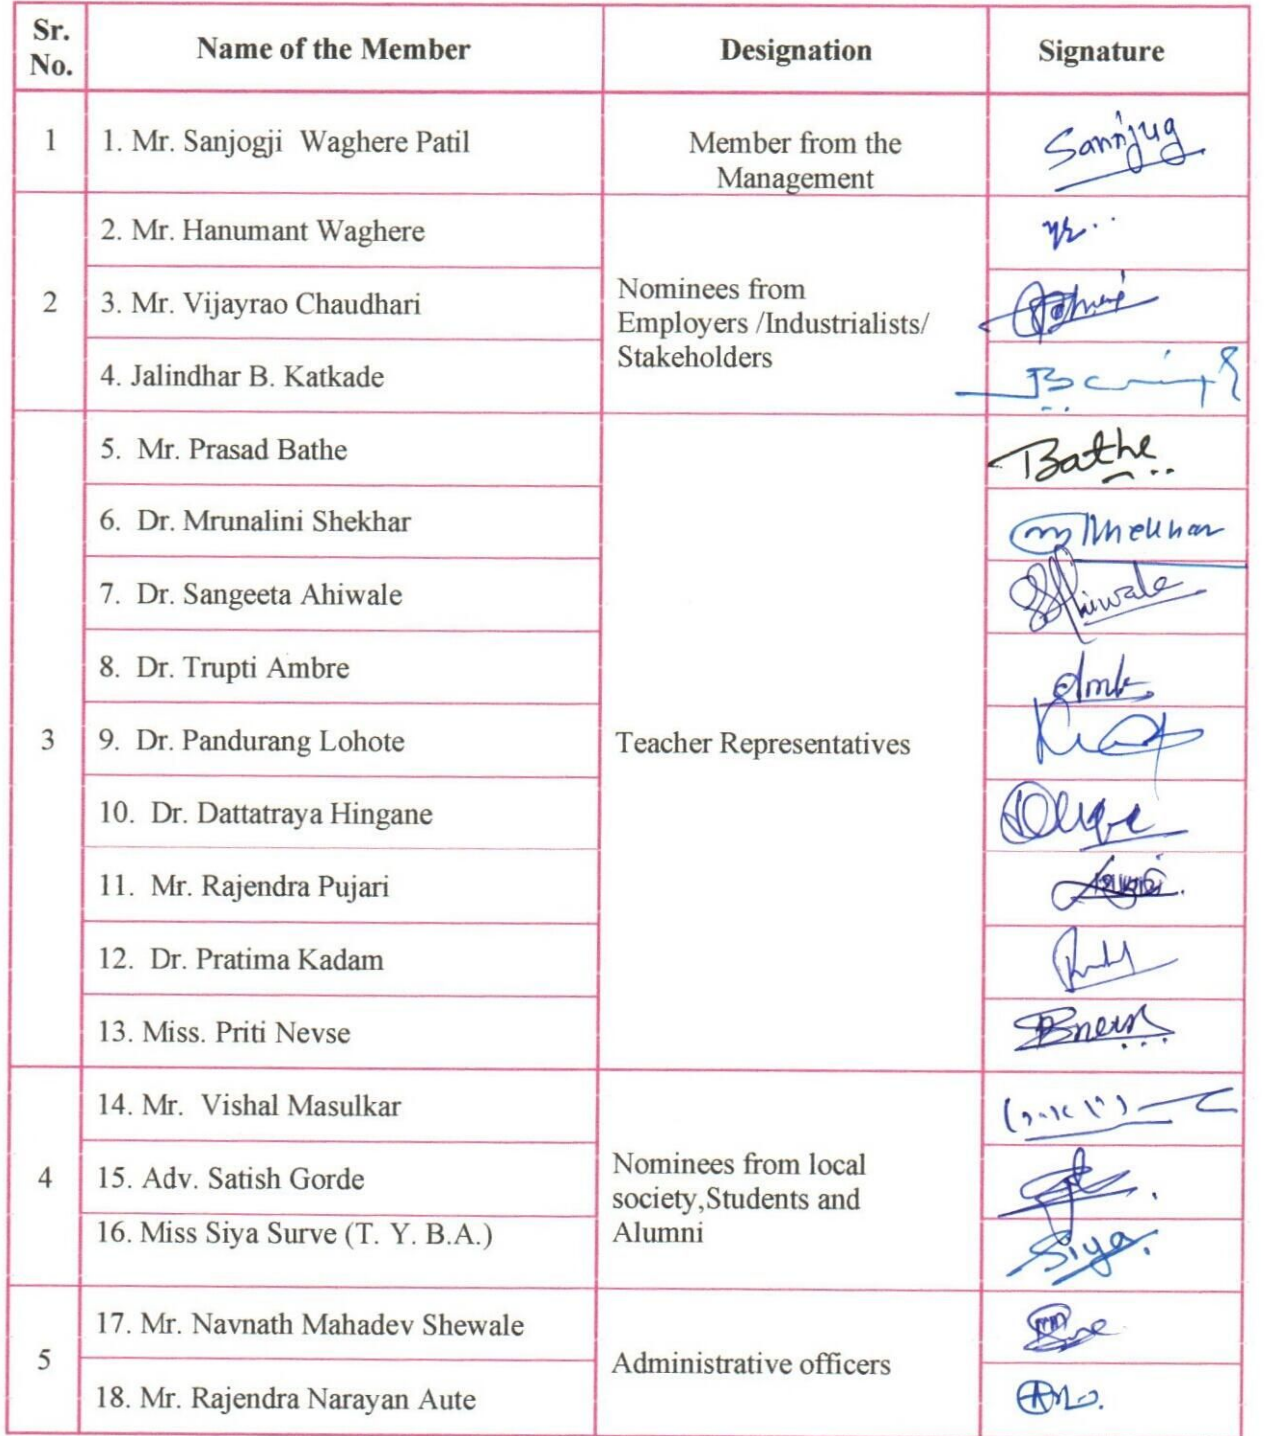 Sr. No. Name of the Member Designation Signature
1 1. Mr. Sanjogji Waghere Patil Member from the Management
2 2. Mr. Hanumant Waghere Nominees from Employers /Industrialists/ Stakeholders
3. Mr. Vijayrao Chaudhari
4. Jalindhar B. Katkade
3 5. Mr. Prasad Bathe Teacher Representatives Bathe
6. Dr. Mrunalini Shekhar
7. Dr. Sangeeta Ahiwale
8. Dr. Trupti Ambre
9. Dr. Pandurang Lohote
10. Dr. Dattatraya Hingane
11. Mr. Rajendra Pujari
12. Dr. Pratima Kadam
13. Miss. Priti Nevse
4 14. Mr. Vishal Masulkar Nominees from local society,Students and Alumni
15. Adv. Satish Gorde
16. Miss Siya Surve (T. Y. B.A.) Siya
5 17. Mr. Navnath Mahadev Shewale Administrative officers
18. Mr. Rajendra Narayan Aute